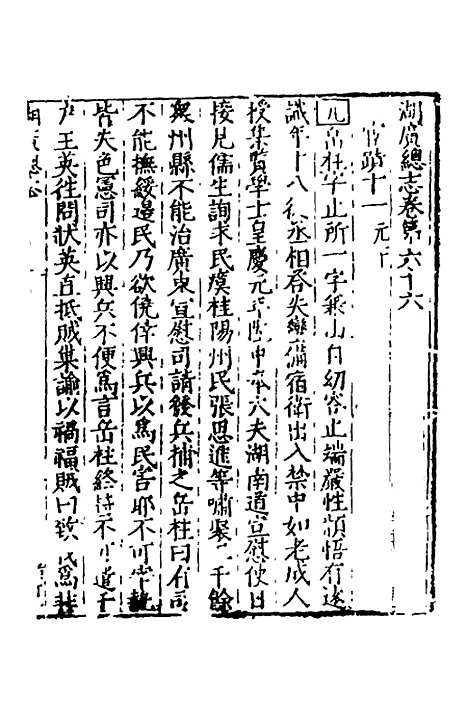 湖廣總志卷第六十六
宦蹟十一 元下
元 岳柱字止所一字兼山自幼容止端嚴性頴悟有遠
識年十八從丞相答失蠻備宿衛出入禁中如老成人
授集賢學士皇慶元年陞中奉大夫湖南道宣慰使日
接見儒生詢求民瘼桂陽州民張思進等嘯聚二千餘
衆州縣不能治廣東宣慰司請發兵捕之岳柱曰有司
不能撫綏邊民乃欲僥倖興兵以爲民害耶不可
皆失色憲司亦以興兵不便爲言岳柱終持不可遣千
戶王英往問狀英直抵賊巢諭以禍福賊曰致我爲
湖廣總志